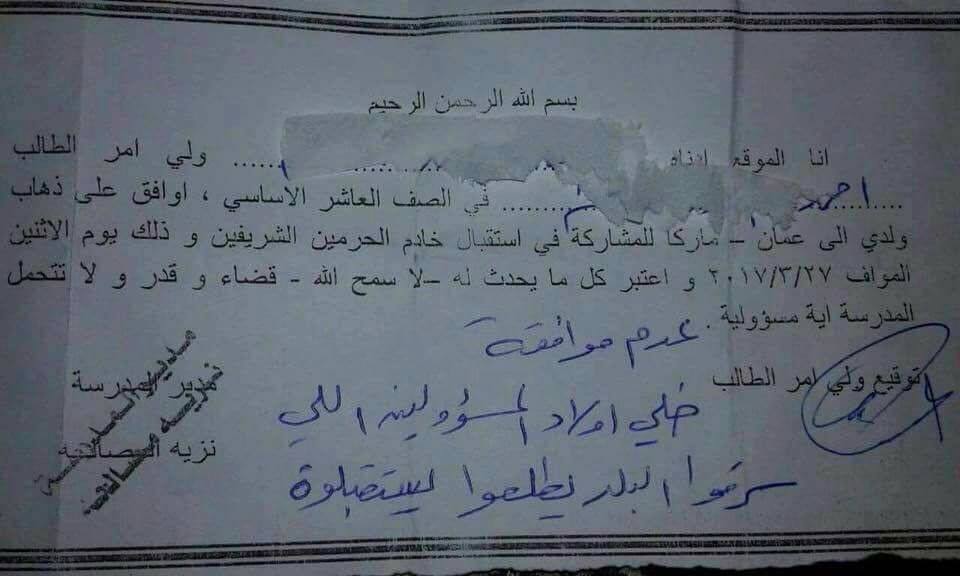 بسم الله الرحمن الرحيم
انا الموقع ادناه ........ ولي امر الطالب
احمد ........ في الصف العاشر الاساسي ، اوافق على ذهاب
ولدي الى عمان – ماركا للمشاركة في استقبال خادم الحرمين الشريفين و ذلك يوم الاثنين
المواف ٢٠١٧/٣/٢٧ و اعتبر كل ما يحدث له –لا سمح الله - قضاء و قدر و لا تتحمل
المدرسة اية مسؤولية .
عدم موافقة
توقيع ولي امر الطالب
مدير المدرسة
نزيه المصالحه
خلي اولاد المسؤولين اللي
سرقوا البلد يطلعوا ليستقبلوة